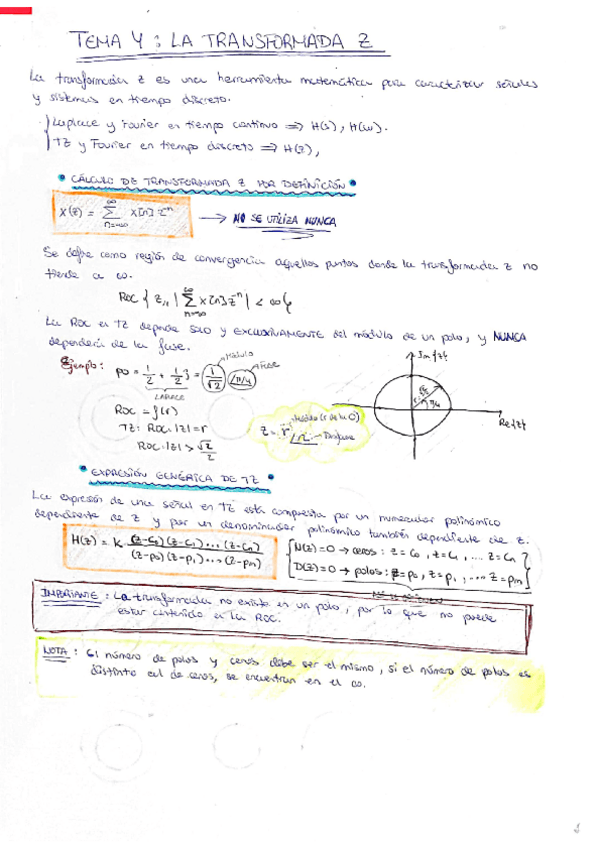 TEMA 4: LA TRANSFORMADA Z
La transformada z es una herramienta matemática para caracterizar señales
y sistemas en tiempo discreto.
Laplace y Fourier en tiempo continuo => H(s), H(ω).
TZ y Fourier en tiempo discreto => H(z),
• CÁLCULO DE TRANSFORMADA Z POR DEFINICIÓN •
X(z) = ∑ x[n] z^-n → NO SE UTILIZA NUNCA
n=-∞ ∞
Se define como región de convergencia aquellos puntos donde la transformada z no
tiende a ∞.
ROC { z,, | ∑ x[n] z^-n | < ∞ }
n=-∞ ∞
La ROC en TZ depende solo y EXCLUSIVAMENTE del módulo de un polo, y NUNCA
dependerá de la fase.
Ejemplo: p0 = 1/2 + 1/2 j = 1/√2 /π/4
Módulo
Fase
LAPLACE
ROC = f(r)
TZ: ROC: |z| = r
ROC: |z| > √2/2
z = r /Ω
Módulo
Im{z}
Re{z}
π/4
• EXPRESIÓN GENÉRICA DE TZ •
La expresión de una señal en TZ está compuesta por un numerador polinómico
dependiente de z y por un denominador polinómico también dependiente de z.
H(z) = K (z-c0)(z-c1)...(z-cn) / (z-p0)(z-p1)...(z-pm)
N(z)=0 → ceros: z=c0, z=c1, ... z=cn
D(z)=0 → polos: z=p0, z=p1, ... z=pm
IMPORTANTE: La transformada no existe en un polo, por lo que no puede
estar contenido en la ROC.
NOTA: El número de polos y ceros debe ser el mismo, si el número de polos es
distinto al de ceros, se encuentran en el ∞.